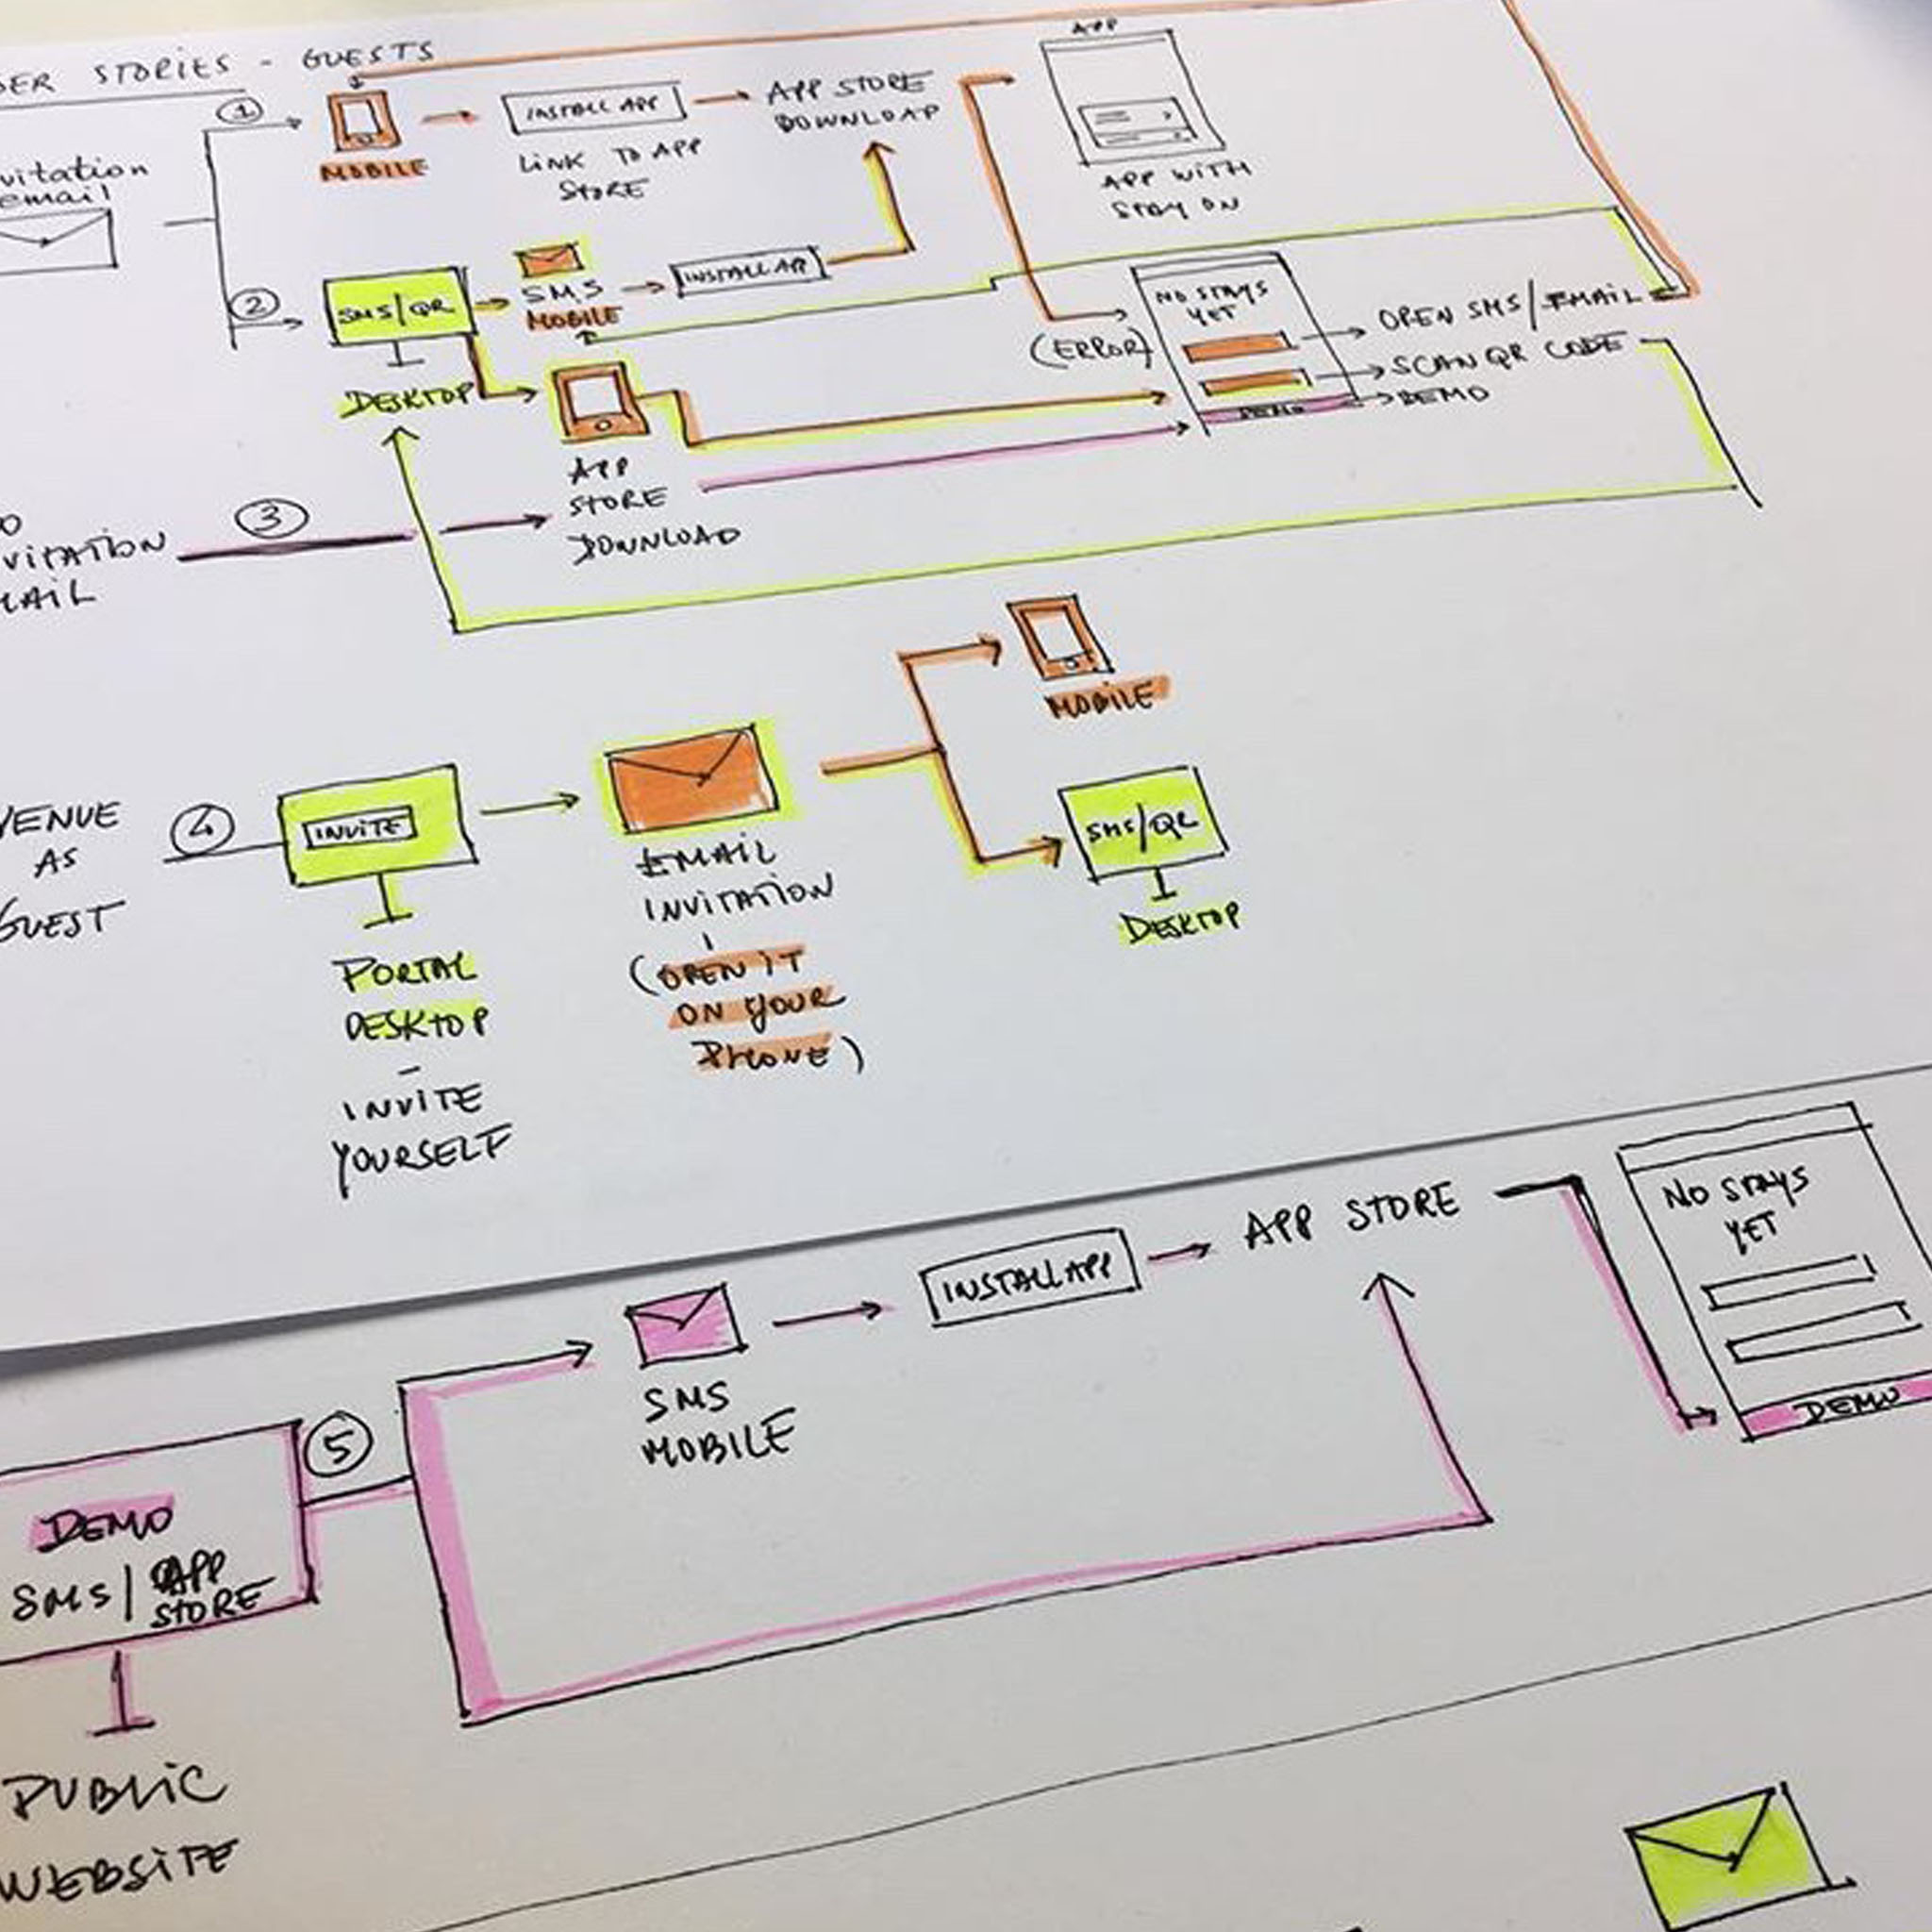 SER STORIES - GUESTS
1
MOBILE
INSTALL APP
LINK TO APP
STORE
APP STORE
DOWNLOAD
APP
APP WITH
STAY ON
vitation
email
2
SMS/QR
DESKTOP
SMS
MOBILE
INSTALL AP
(ERROR)
NO STAYS
YET
DEMO
OPEN SMS/EMAIL
SCAN QR CODE
DEMO
APP
STORE
DOWNLOAD
O
VITATION
MAIL
3
VENUE
AS
GUEST
4
INVITE
PORTAL
DESKTOP
-
INVITE
YOURSELF
EMAIL
INVITATION
(OPEN IT
ON YOUR
PHONE)
MOBILE
SMS/QR
DESKTOP
5
DEMO
SMS/APP
STORE
PUBLIC
WEBSITE
SMS
MOBILE
INSTALL APP
APP STORE
NO STAYS
YET
DEMO